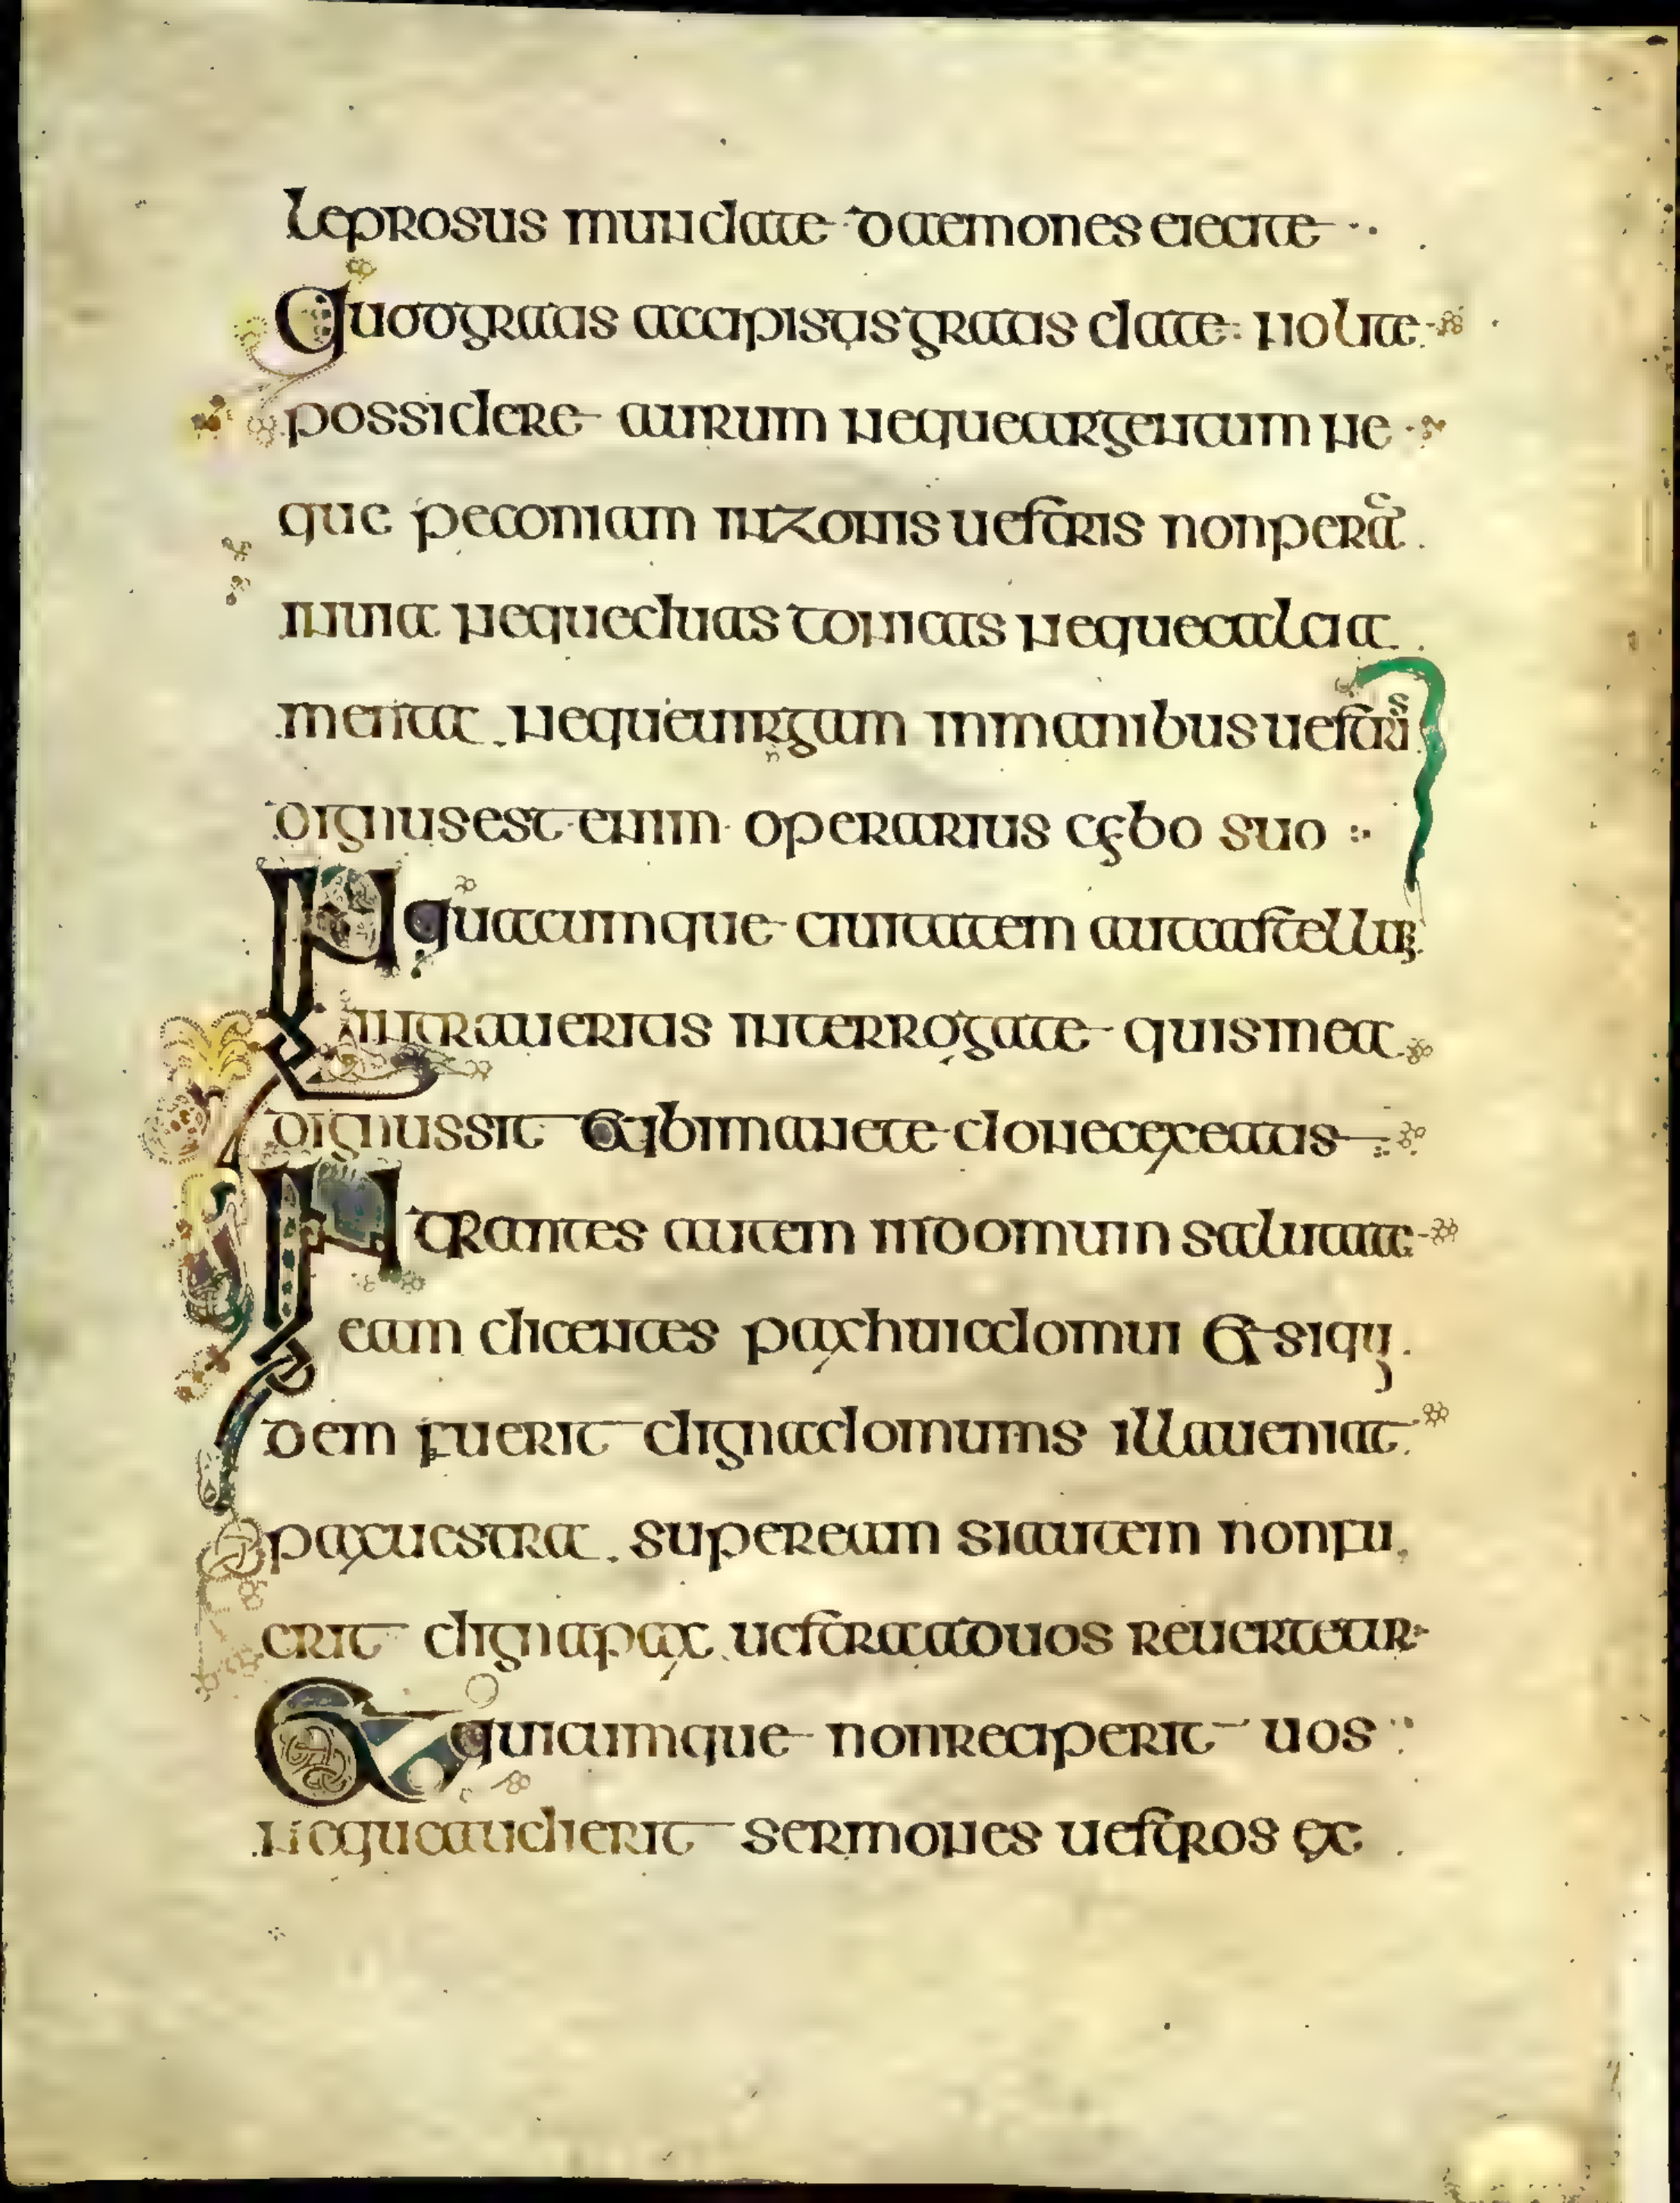 leprosus mundate daemones eiecite
Quod gratis accipistis gratis date nolite
possidere aurum neque argentum ne
que peconiam in zonis uestris non perā
in uia neque duas tonicas neque calcia
menta neque uirgam in manibus uestris
dignus est enim operarius cybo suo
IN quacumque ciuitatem aut castellum
intraueritis interrogate quis in ea
dignus sit et ibi manete donec exeatis
INtrantes autem in domum salutate
eam dicentes pax huic domui et siqui
dem fuerit digna domums illa ueniat
pax uestra super eam si autem non fu
erit digna pax uestra ad uos reuertetur
Et quicumque non reciperit uos
neque audierit sermones uestros ex